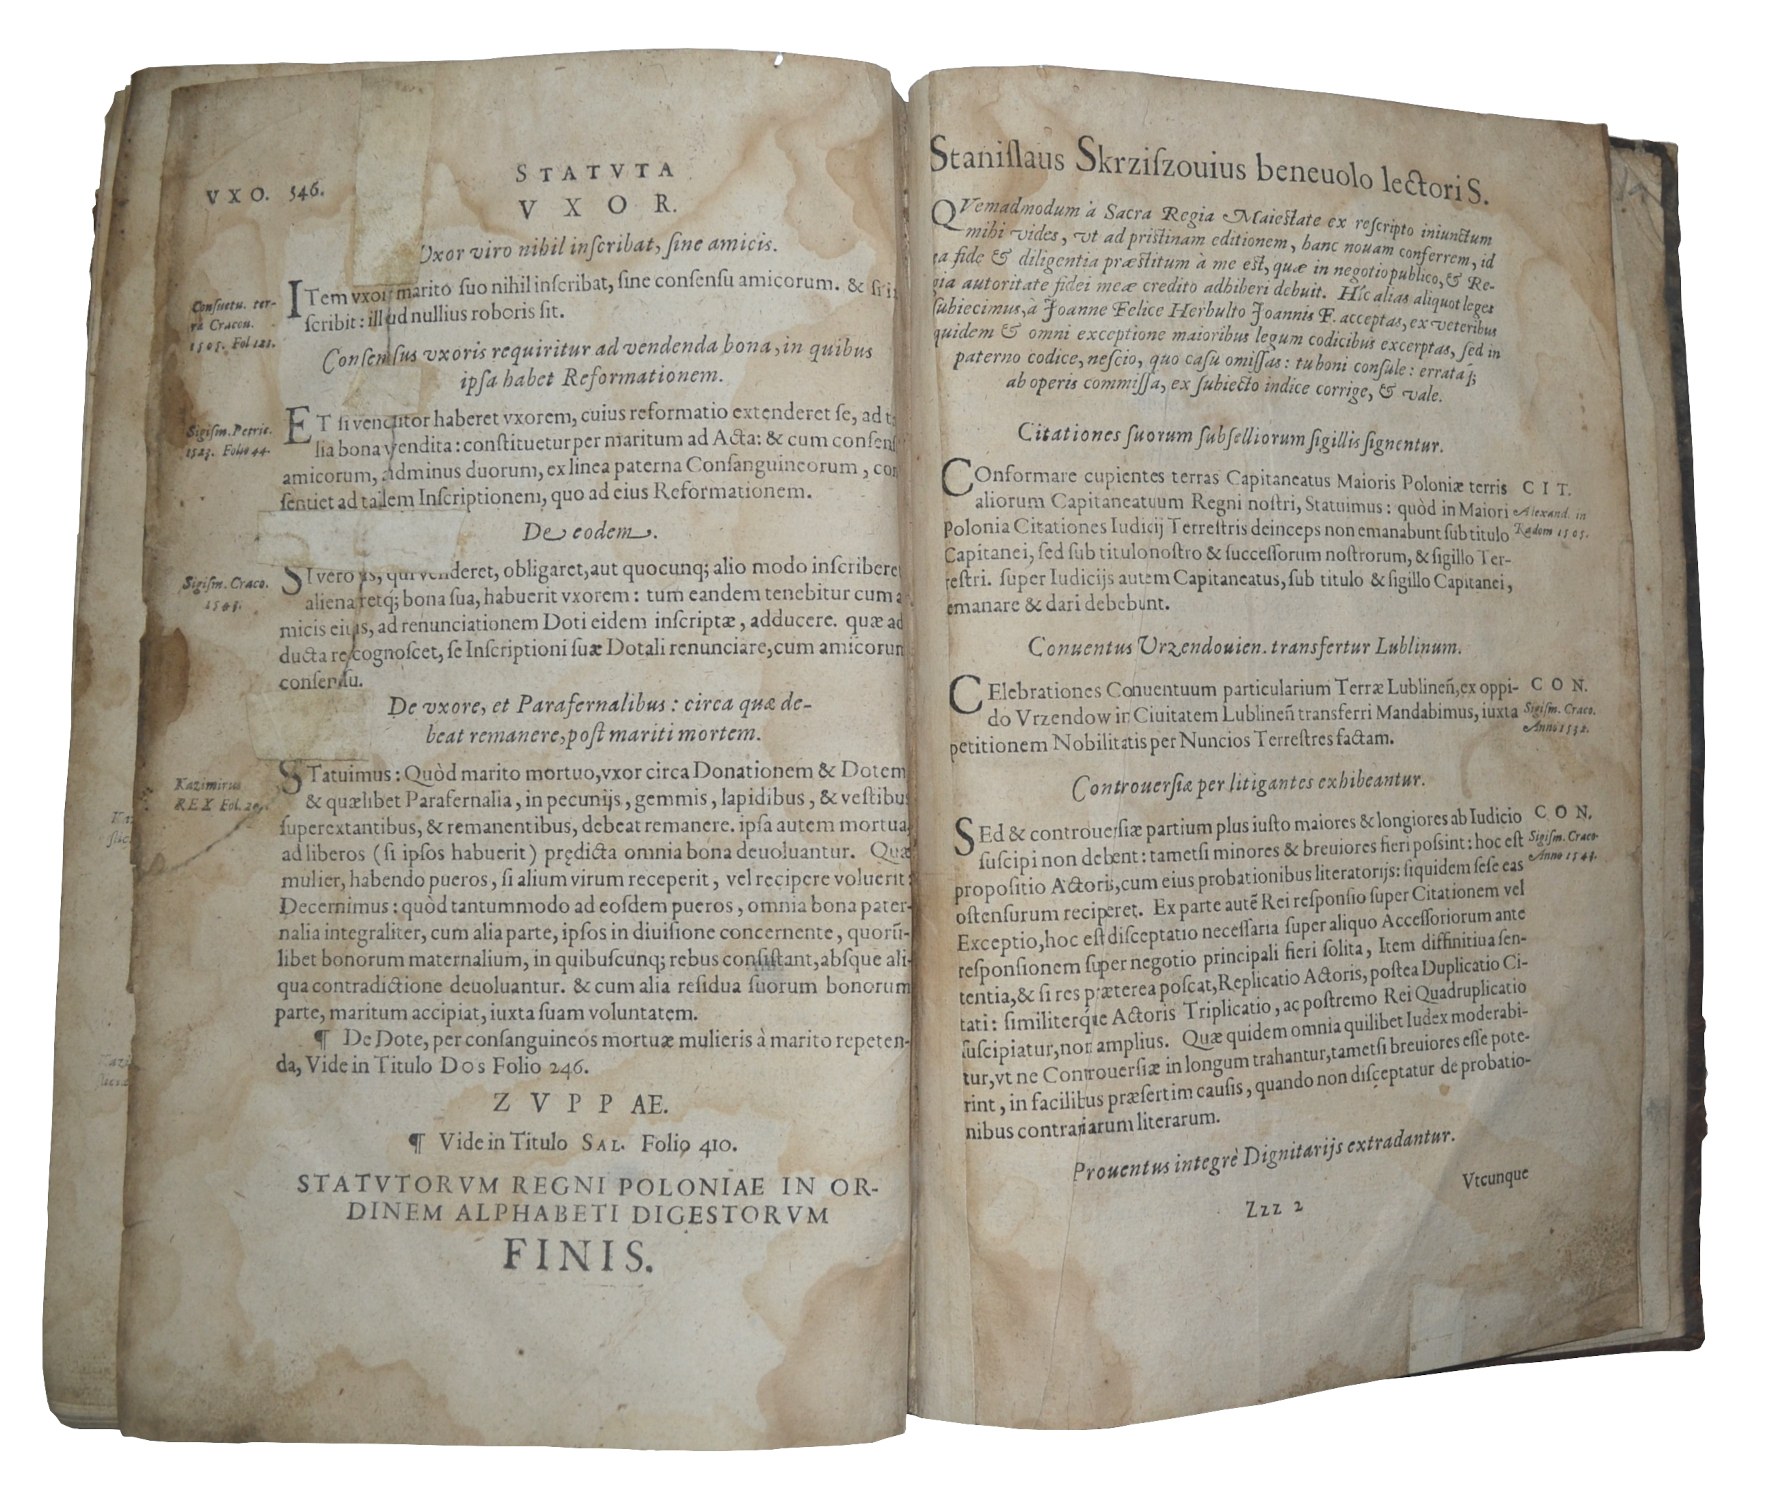 VXO. 546.
STATVTA
VXOR.
Vxor viro nihil inſcribat, ſine amicis.
Conſuetu. ter-
ræ Cracou.
1505. Fol 121.
ITem vxor marito ſuo nihil inſcribat, ſine conſenſu amicorum. & ſi
ſcribit: illud nullius roboris ſit.
Conſenſus vxoris requiritur ad vendenda bona, in quibus
ipſa habet Reformationem.
Sigiſm. Petric.
1523. Folio 44.
ET ſi venditor haberet vxorem, cuius reformatio extenderet ſe, ad
lia bona vendita: conſtituetur per maritum ad Acta: & cum conſenſ
amicorum, adminus duorum, ex linea paterna Conſanguineorum, con
ſentiet ad talem Inſcriptionem, quo ad eius Reformationem.
De eodem.
Sigiſm. Craco.
1543.
SI vero is, qui venderet, obligaret, aut quocunq; alio modo inſcribere
alienaretq; bona ſua, habuerit vxorem: tum eandem tenebitur cum a
micis eius, ad renunciationem Doti eidem inſcriptæ, adducere. quæ ad
ducta recognoſcet, ſe Inſcriptioni ſuæ Dotali renunciare, cum amicorum
conſenſu.
De vxore, et Parafernalibus: circa quæ de-
beat remanere, poſt mariti mortem.
Kazimirus
REX Fol.
STatuimus: Quòd marito mortuo, vxor circa Donationem & Dotem
& quælibet Parafernalia, in pecunijs, gemmis, lapidibus, & veſtibus
ſuperextantibus, & remanentibus, debeat remanere. ipſa autem mortua,
ad liberos (ſi ipſos habuerit) prędicta omnia bona deuoluantur. Quæ
mulier, habendo pueros, ſi alium virum receperit, vel recipere voluerit:
Decernimus: quòd tantummodo ad eoſdem pueros, omnia bona pater-
nalia integraliter, cum alia parte, ipſos in diuiſione concernente, quorũ-
libet bonorum maternalium, in quibuſcunq; rebus conſiſtant, abſque ali-
qua contradictione deuoluantur. & cum alia reſidua ſuorum bonorum
parte, maritum accipiat, iuxta ſuam voluntatem.
¶ De Dote, per conſanguineos mortuæ mulieris à marito repeten-
da, Vide in Titulo Dos Folio 246.
ZVPPAE.
¶ Vide in Titulo SAL. Folio 410.
STATVTORVM REGNI POLONIAE IN OR-
DINEM ALPHABETI DIGESTORVM
FINIS.
Staniſlaus Skrziſzouius beneuolo lectori S.
QVemadmodum à Sacra Regia Maieſtate ex reſcripto iniunctum
mihi vides, vt ad priſtinam editionem, hanc nouam conferrem, id
ea fide & diligentia præſtitum à me eſt, quæ in negotio publico, & Re-
gia autoritate fidei meæ credito adhiberi debuit. Hîc alias aliquot leges
ſubiecimus, à Joanne Felice Herbulto Joannis F. acceptas, ex veteribus
quidem & omni exceptione maioribus legum codicibus excerptas, ſed in
paterno codice, neſcio, quo caſu omiſſas: tu boni conſule: errataq;
ab operis commiſſa, ex ſubiecto indice corrige, & vale.
Citationes ſuorum ſubſelliorum ſigillis ſignentur.
COnformare cupientes terras Capitaneatus Maioris Poloniæ terris
aliorum Capitaneatuum Regni noſtri, Statuimus: quòd in Maiori
Polonia Citationes Iudicij Terreſtris deinceps non emanabunt ſub titulo
Capitanei, ſed ſub titulo noſtro & ſucceſſorum noſtrorum, & ſigillo Ter-
reſtri. ſuper Iudicijs autem Capitaneatus, ſub titulo & ſigillo Capitanei,
emanare & dari debebunt.
CIT.
Alexand. in
Radom 1505.
Conuentus Vrzendouien. transfertur Lublinum.
CElebrationes Conuentuum particularium Terræ Lublineñ, ex oppi-
do Vrzendow in Ciuitatem Lublineñ transferri Mandabimus, iuxta
petitionem Nobilitatis per Nuncios Terreſtres factam.
CON.
Sigiſm. Craco.
Anno 1532.
Controuerſiæ per litigantes exhibeantur.
SEd & controuerſiæ partium plus iuſto maiores & longiores ab Iudicio
ſuſcipi non debent: tametſi minores & breuiores fieri poſſint: hoc eſt
propoſitio Actoris, cum eius probationibus literatorijs: ſiquidem ſeſe eas
oſtenſurum reciperet. Ex parte autẽ Rei reſponſio ſuper Citationem vel
Exceptio, hoc eſt diſceptatio neceſſaria ſuper aliquo Acceſſoriorum ante
reſponſionem ſuper negotio principali fieri ſolita, Item diffinitiua ſen-
tentia, & ſi res præterea poſcat, Replicatio Actoris, poſtea Duplicatio Ci-
tati: ſimiliterq́ue Actoris Triplicatio, ac poſtremo Rei Quadruplicatio
ſuſcipiatur, non amplius. Quæ quidem omnia quilibet Iudex moderabi-
tur, vt ne Controuerſiæ in longum trahantur, tametſi breuiores eſſe pote-
rint, in facilibus præſertim cauſis, quando non diſceptatur de probatio-
nibus contrariarum literarum.
CON.
Sigiſm. Craco.
Anno 1543.
Prouentus integrè Dignitarijs extradantur.
Vtcunque
Zzz 2